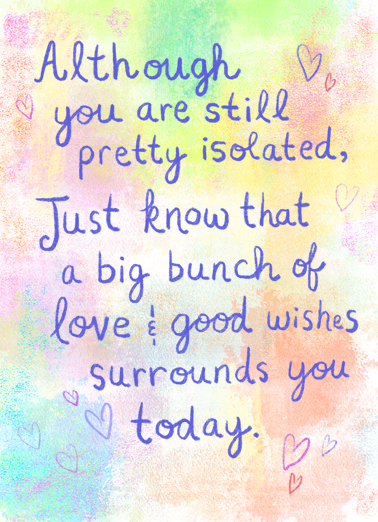 Although
you are still
pretty isolated,
Just know that
a big bunch of
love & good wishes
surrounds you
today.